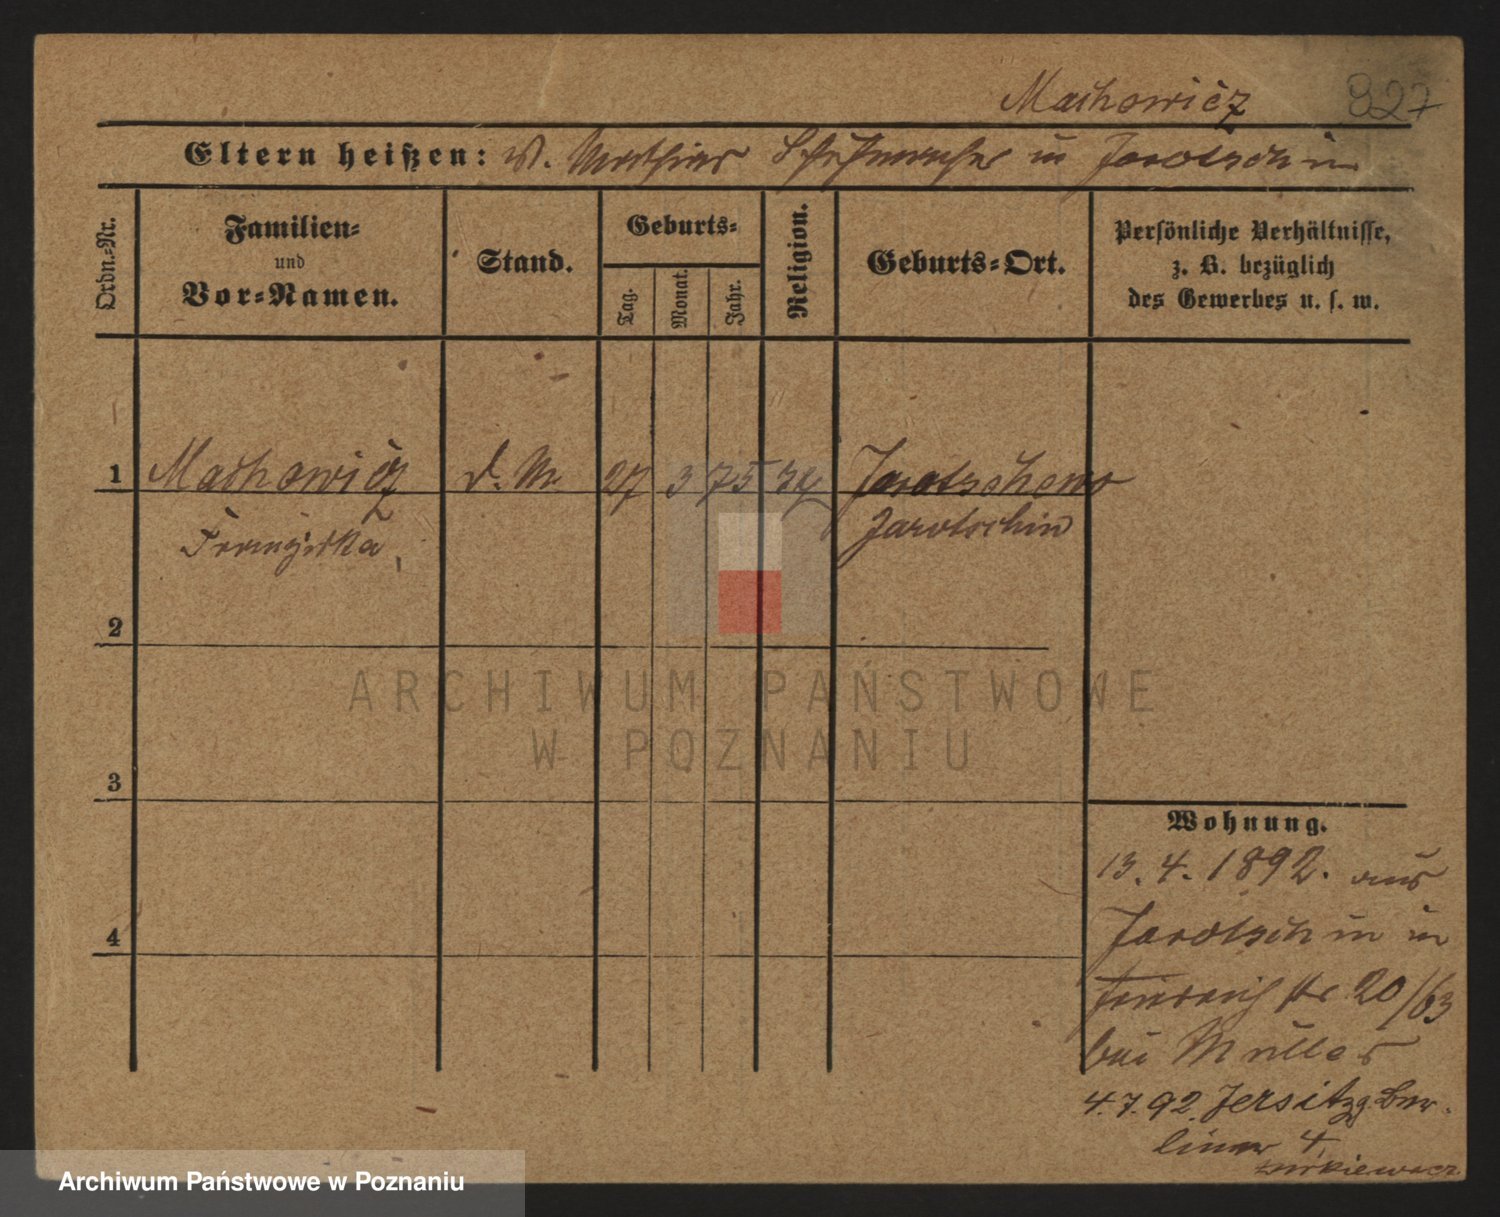 Machowicz 827
Eltern heißen: Schuhmacher in Jarotschin
Ordn.-Nr.
Familien-
und
Vor-Namen.
Stand.
Geburts-
Tag.
Monat.
Jahr.
Religion.
Geburts-Ort.
Persönliche Verhältnisse,
z. B. bezüglich
des Gewerbes u. s. w.
1 Machowicz d. M. 27 3 75 Jarotschewo
Franziska Jarotschin
2
3
4
Wohnung.
13. 4. 1892. aus
Jarotschin in
20/63
bei Müller
4.7.92. Jersitz Ber-
liner 4,
ARCHIWUM PAŃSTWOWE
W POZNANIU
Archiwum Państwowe w Poznaniu